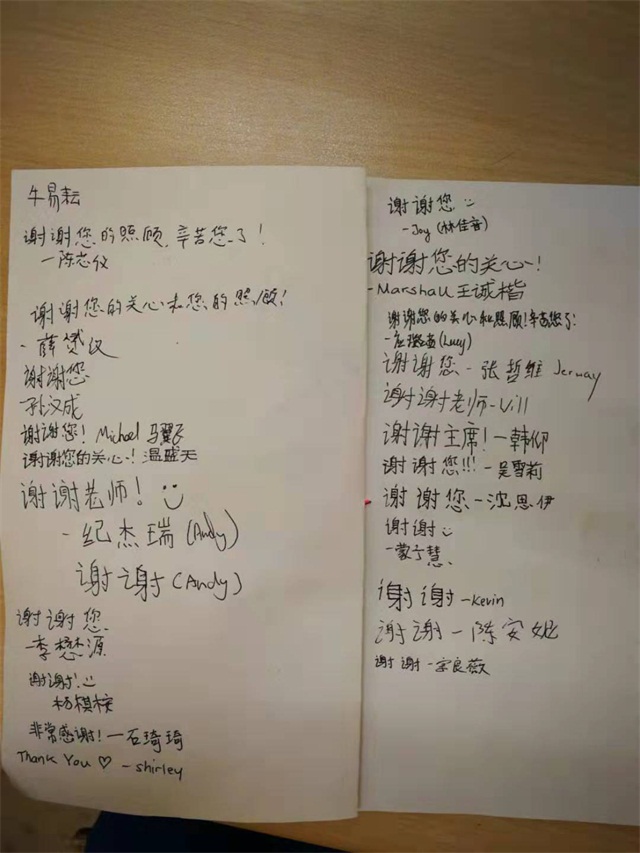 牛易耘
谢谢您的照顾,辛苦您了!
—陈芯仪
谢谢您的关心和您的照顾!
-薛赟仪
谢谢您
-孙汉成
谢谢您! Michael 马翼飞
谢谢您的关心! 温盛天
谢谢老师!
-纪杰瑞(Andy)
谢谢(Andy)
谢谢您
-李懋源
谢谢!
杨棋桉
非常感谢!—石琦琦
Thank You ♡ -shirley
谢谢您
-Joy (林佳音)
谢谢您的关心!
-Marshall 王诚楷
谢谢您的关心和照顾!辛苦您了!
(Lucy)
谢谢您-张哲维
谢谢老师-Will
谢谢主席!—韩仰
谢谢您!!!-吴雪莉
谢谢您-沈思伊
谢谢
-蒙亍慧
谢谢-Kevin
谢谢-陈安妮
谢谢-宗良薇